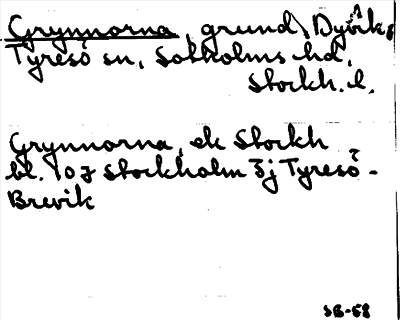 Grynnorna, grund, Dyvik,
Tyresö sn, Sotholms hd,
Stockh. l.
Grynnorna, ek Stockh
bl. 107 Stockholm 3j Tyresö -
Brevik
SB-58